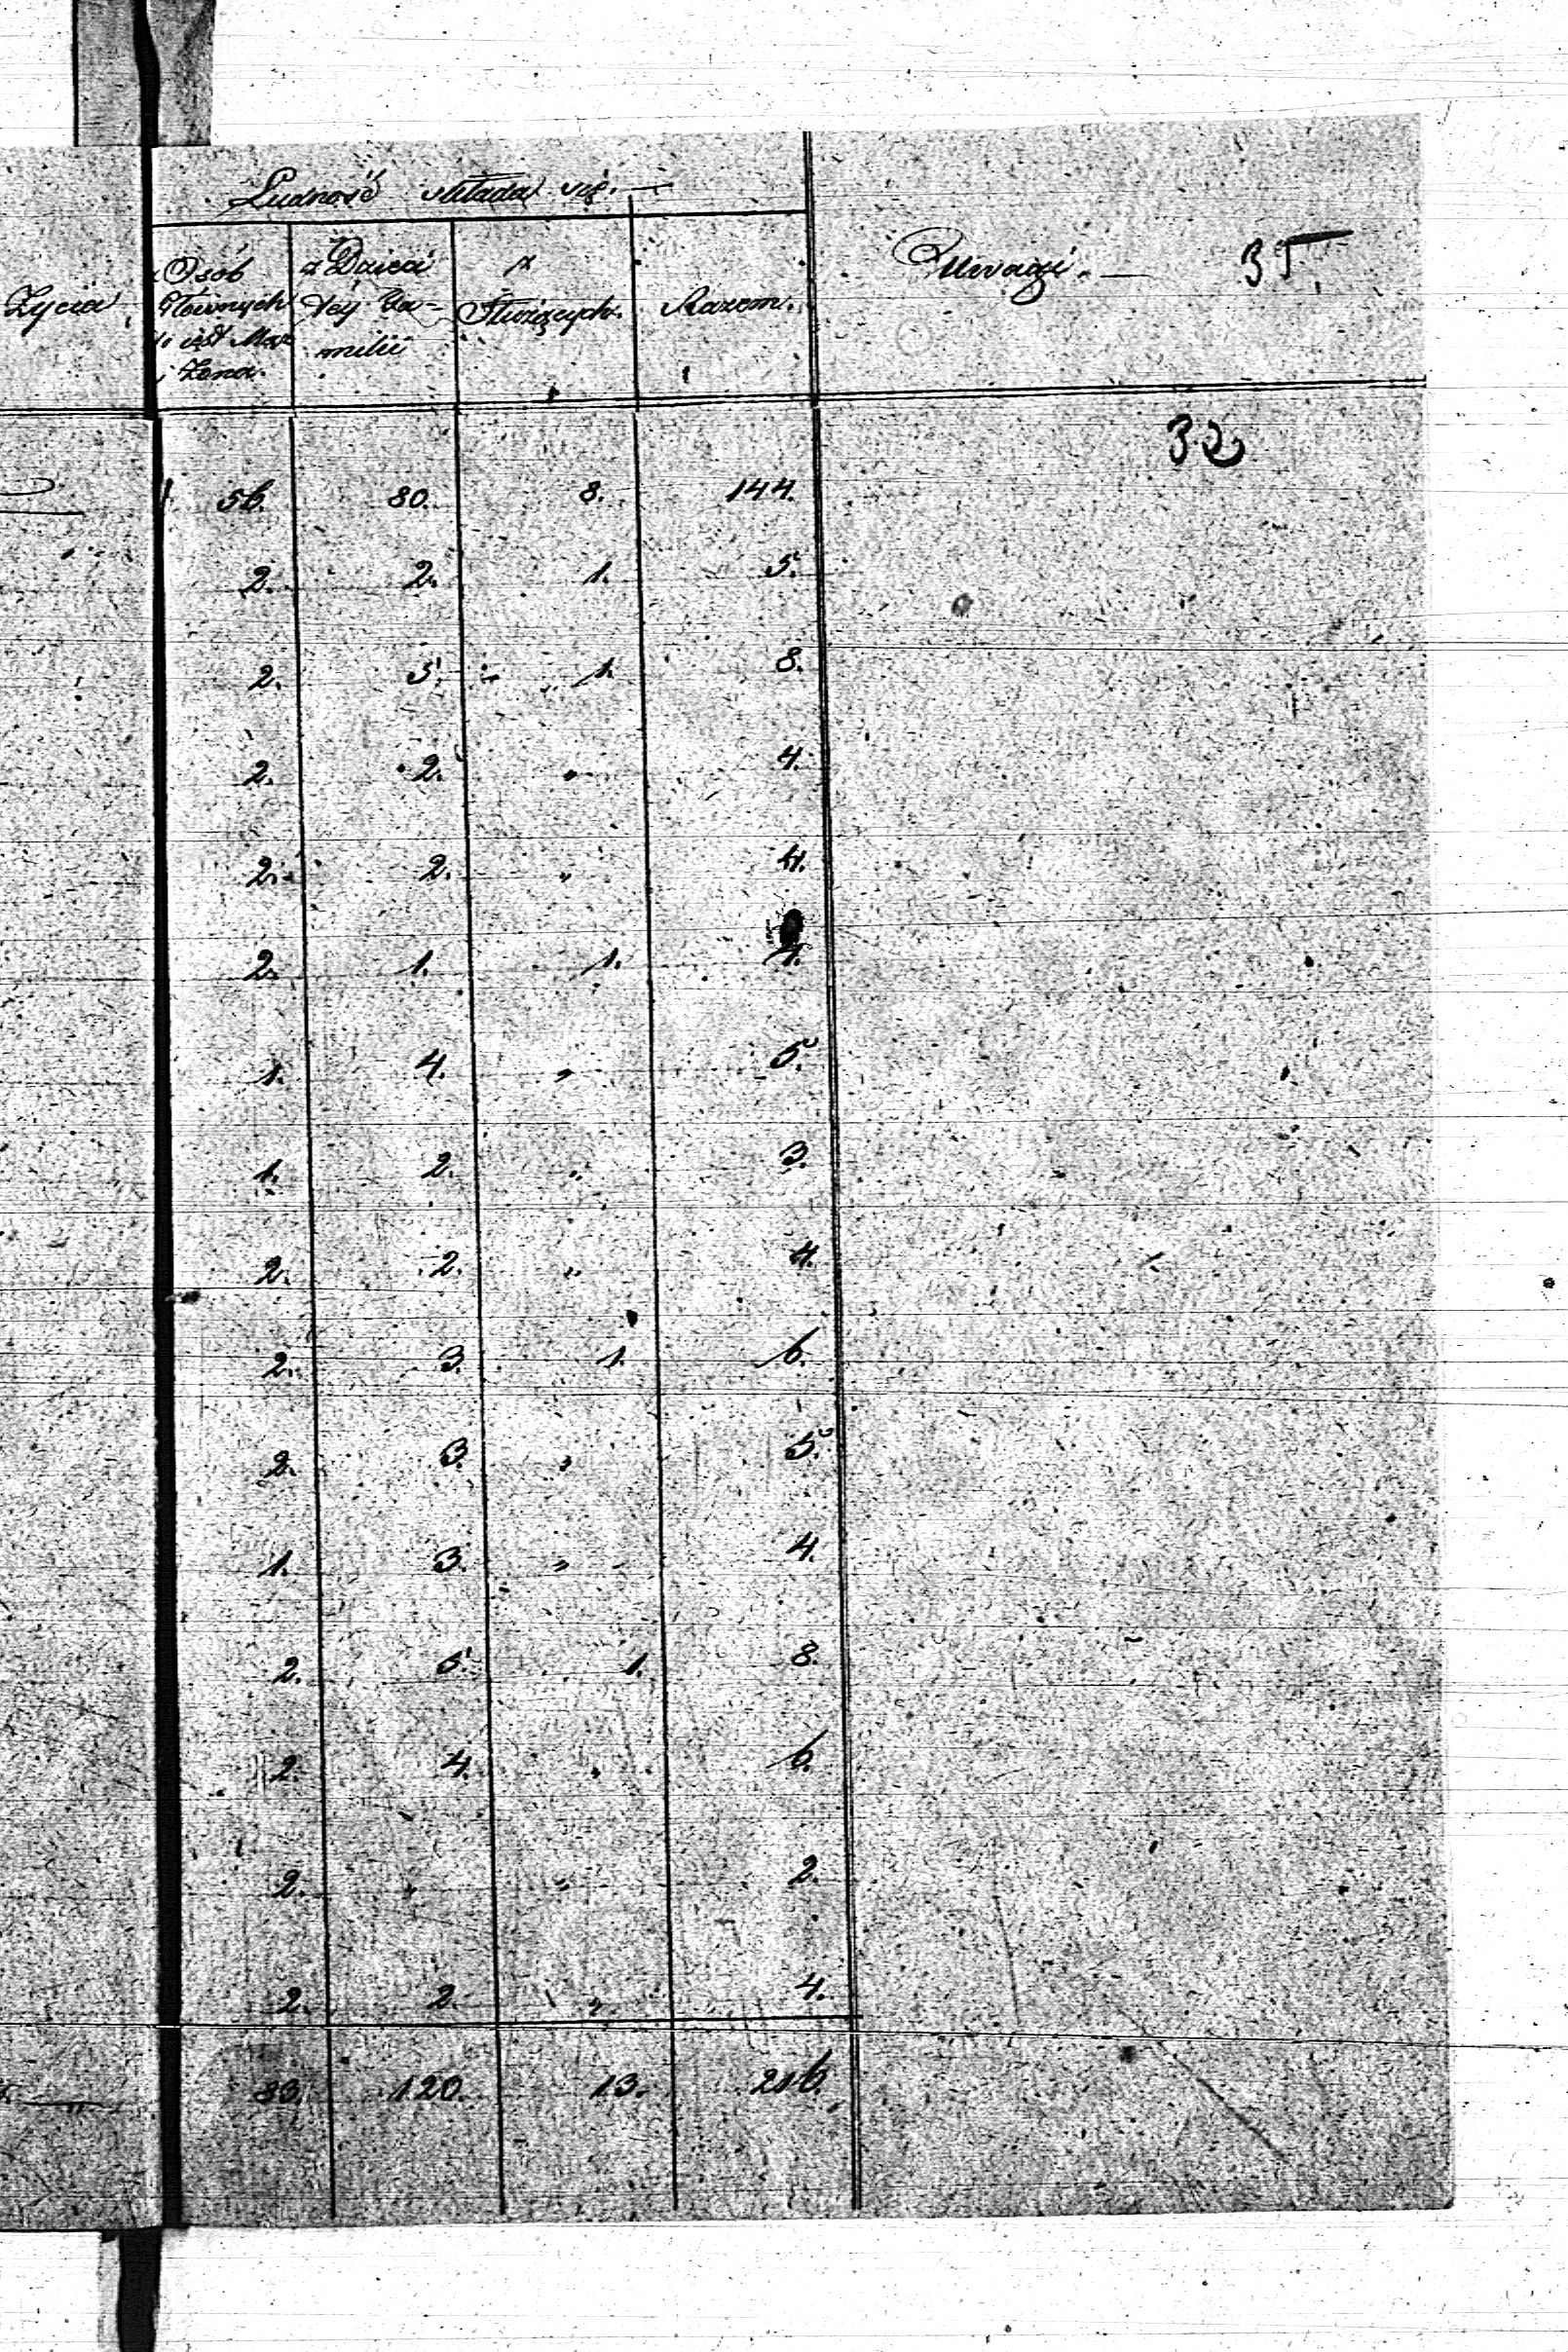 Ludność składa się. —
Życia
z Osób
Głównych
to iest Mąż
i Żona.
z Dzieci
tey Fa-
milii
z
Służących.
Razem.
Uwagi. —
35
32
56. 80. 8. 144.
2. 2. 1. 5.
2. 5. 1. 8.
2. 2. „ 4.
2. 2. „ 4.
2. 1. 1. 4.
1. 4. „ 5.
1. 2. „ 3.
2. 2. „ 4.
2. 3. 1. 6.
2. 3. „ 5.
1. 3. „ 4.
2. 5. 1. 8.
2. 4. „ 6.
2. „ „ 2.
2. 2. „ 4.
83. 120. 13. 216.